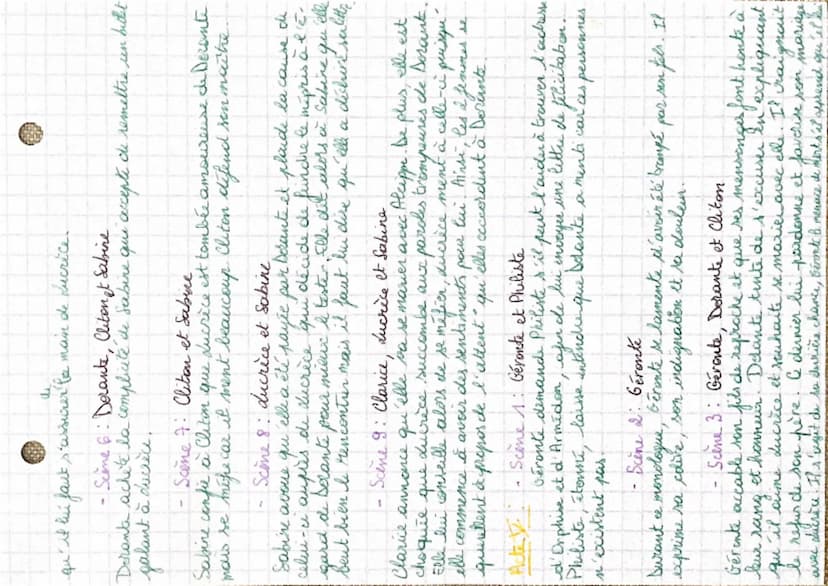 qu'il lui faut, s'assurer de la main de Lucrèce.
- Scène 6 : Dorante, Cliton et Sabine
Dorante achète la complicité de Sabine qui accepte de remettre un billet
galant à Lucrèce.
- Scène 7 : Cliton et Sabine
Sabine confie à Cliton que Lucrèce est tombée amoureuse de Dorante
mais se méfie car il ment beaucoup. Cliton défend son maître.
- Scène 8 : Lucrèce et Sabine
Sabine avoue qu'elle a été payée par Dorante et plaide la cause de
celui-ci auprès de Lucrèce qui décide de feindre le mépris à l'é-
gard de Dorante pour mieux le tester. Elle dit alors à Sabine qu'elle
veut bien le rencontrer mais il faut lui dire qu'elle a déchiré sa lettre.
- Scène 9 : Clarice, Lucrèce et Sabine
Clarice annonce qu'elle va se marier avec Alcippe. De plus, elle est
choquée que Lucrèce succombe aux paroles trompeuses de Dorante.
Elle lui conseille alors de se méfier, Lucrèce ment à celle-ci puisqu'
elle commence à avoir des sentiments pour lui. Ainsi les 2 femmes se
querellent à propos de l'attention qu'elles accordent à Dorante.
Acte V : - Scène 1 : Géronte et Philiste
Géronte demande à Philiste s'il peut l'aider à trouver l'adresse
d'Orphise et d'Armédon, afin de lui envoyer une lettre de félicitation.
Philiste, étonné, laisse entendre que Dorante a menti car ces personnes
n'existent pas.
- Scène 2 : Géronte
Durant ce monologue, Géronte se lamente d'avoir été trompé par son fils. Il
exprime sa colère, son indignation et sa douleur.
- Scène 3 : Géronte, Dorante et Cliton
Géronte accable son fils de reproche et que ses mensonges font honte à
leur sang et honneur. Dorante tente de s'excuser en expliquant
qu'il aime Lucrèce et souhaite se marier avec elle. Il craignait
le refus de son père. Ce dernier lui pardonne et favorise son mariage